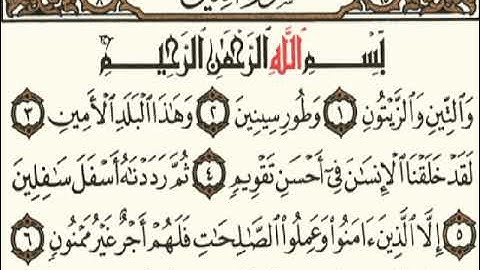 بِسْمِ اللَّهِ الرَّحْمَٰنِ الرَّحِيمِ
وَالتِّينِ وَالزَّيْتُونِ ١ وَطُورِ سِينِينَ ٢ وَهَٰذَا الْبَلَدِ الْأَمِينِ ٣
لَقَدْ خَلَقْنَا الْإِنسَانَ فِي أَحْسَنِ تَقْوِيمٍ ٤ ثُمَّ رَدَدْنَاهُ أَسْفَلَ سَافِلِينَ
٥ إِلَّا الَّذِينَ ءَامَنُوا وَعَمِلُوا الصَّالِحَاتِ فَلَهُمْ أَجْرٌ غَيْرُ مَمْنُونٍ ٦